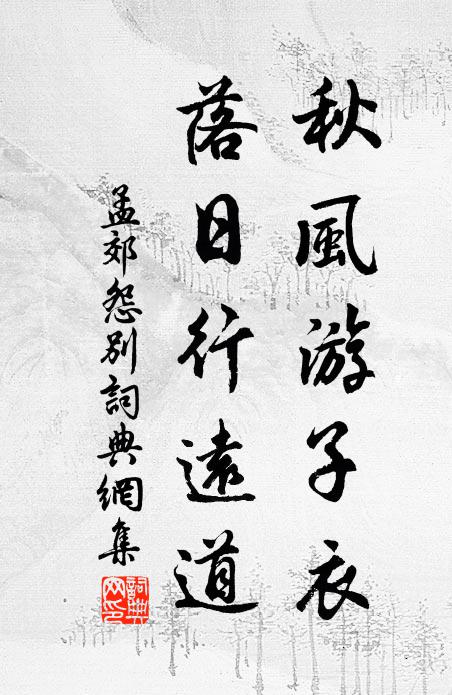 秋風游子衣
落日行遠道
孟郊怨別詞典網集
詞典网印